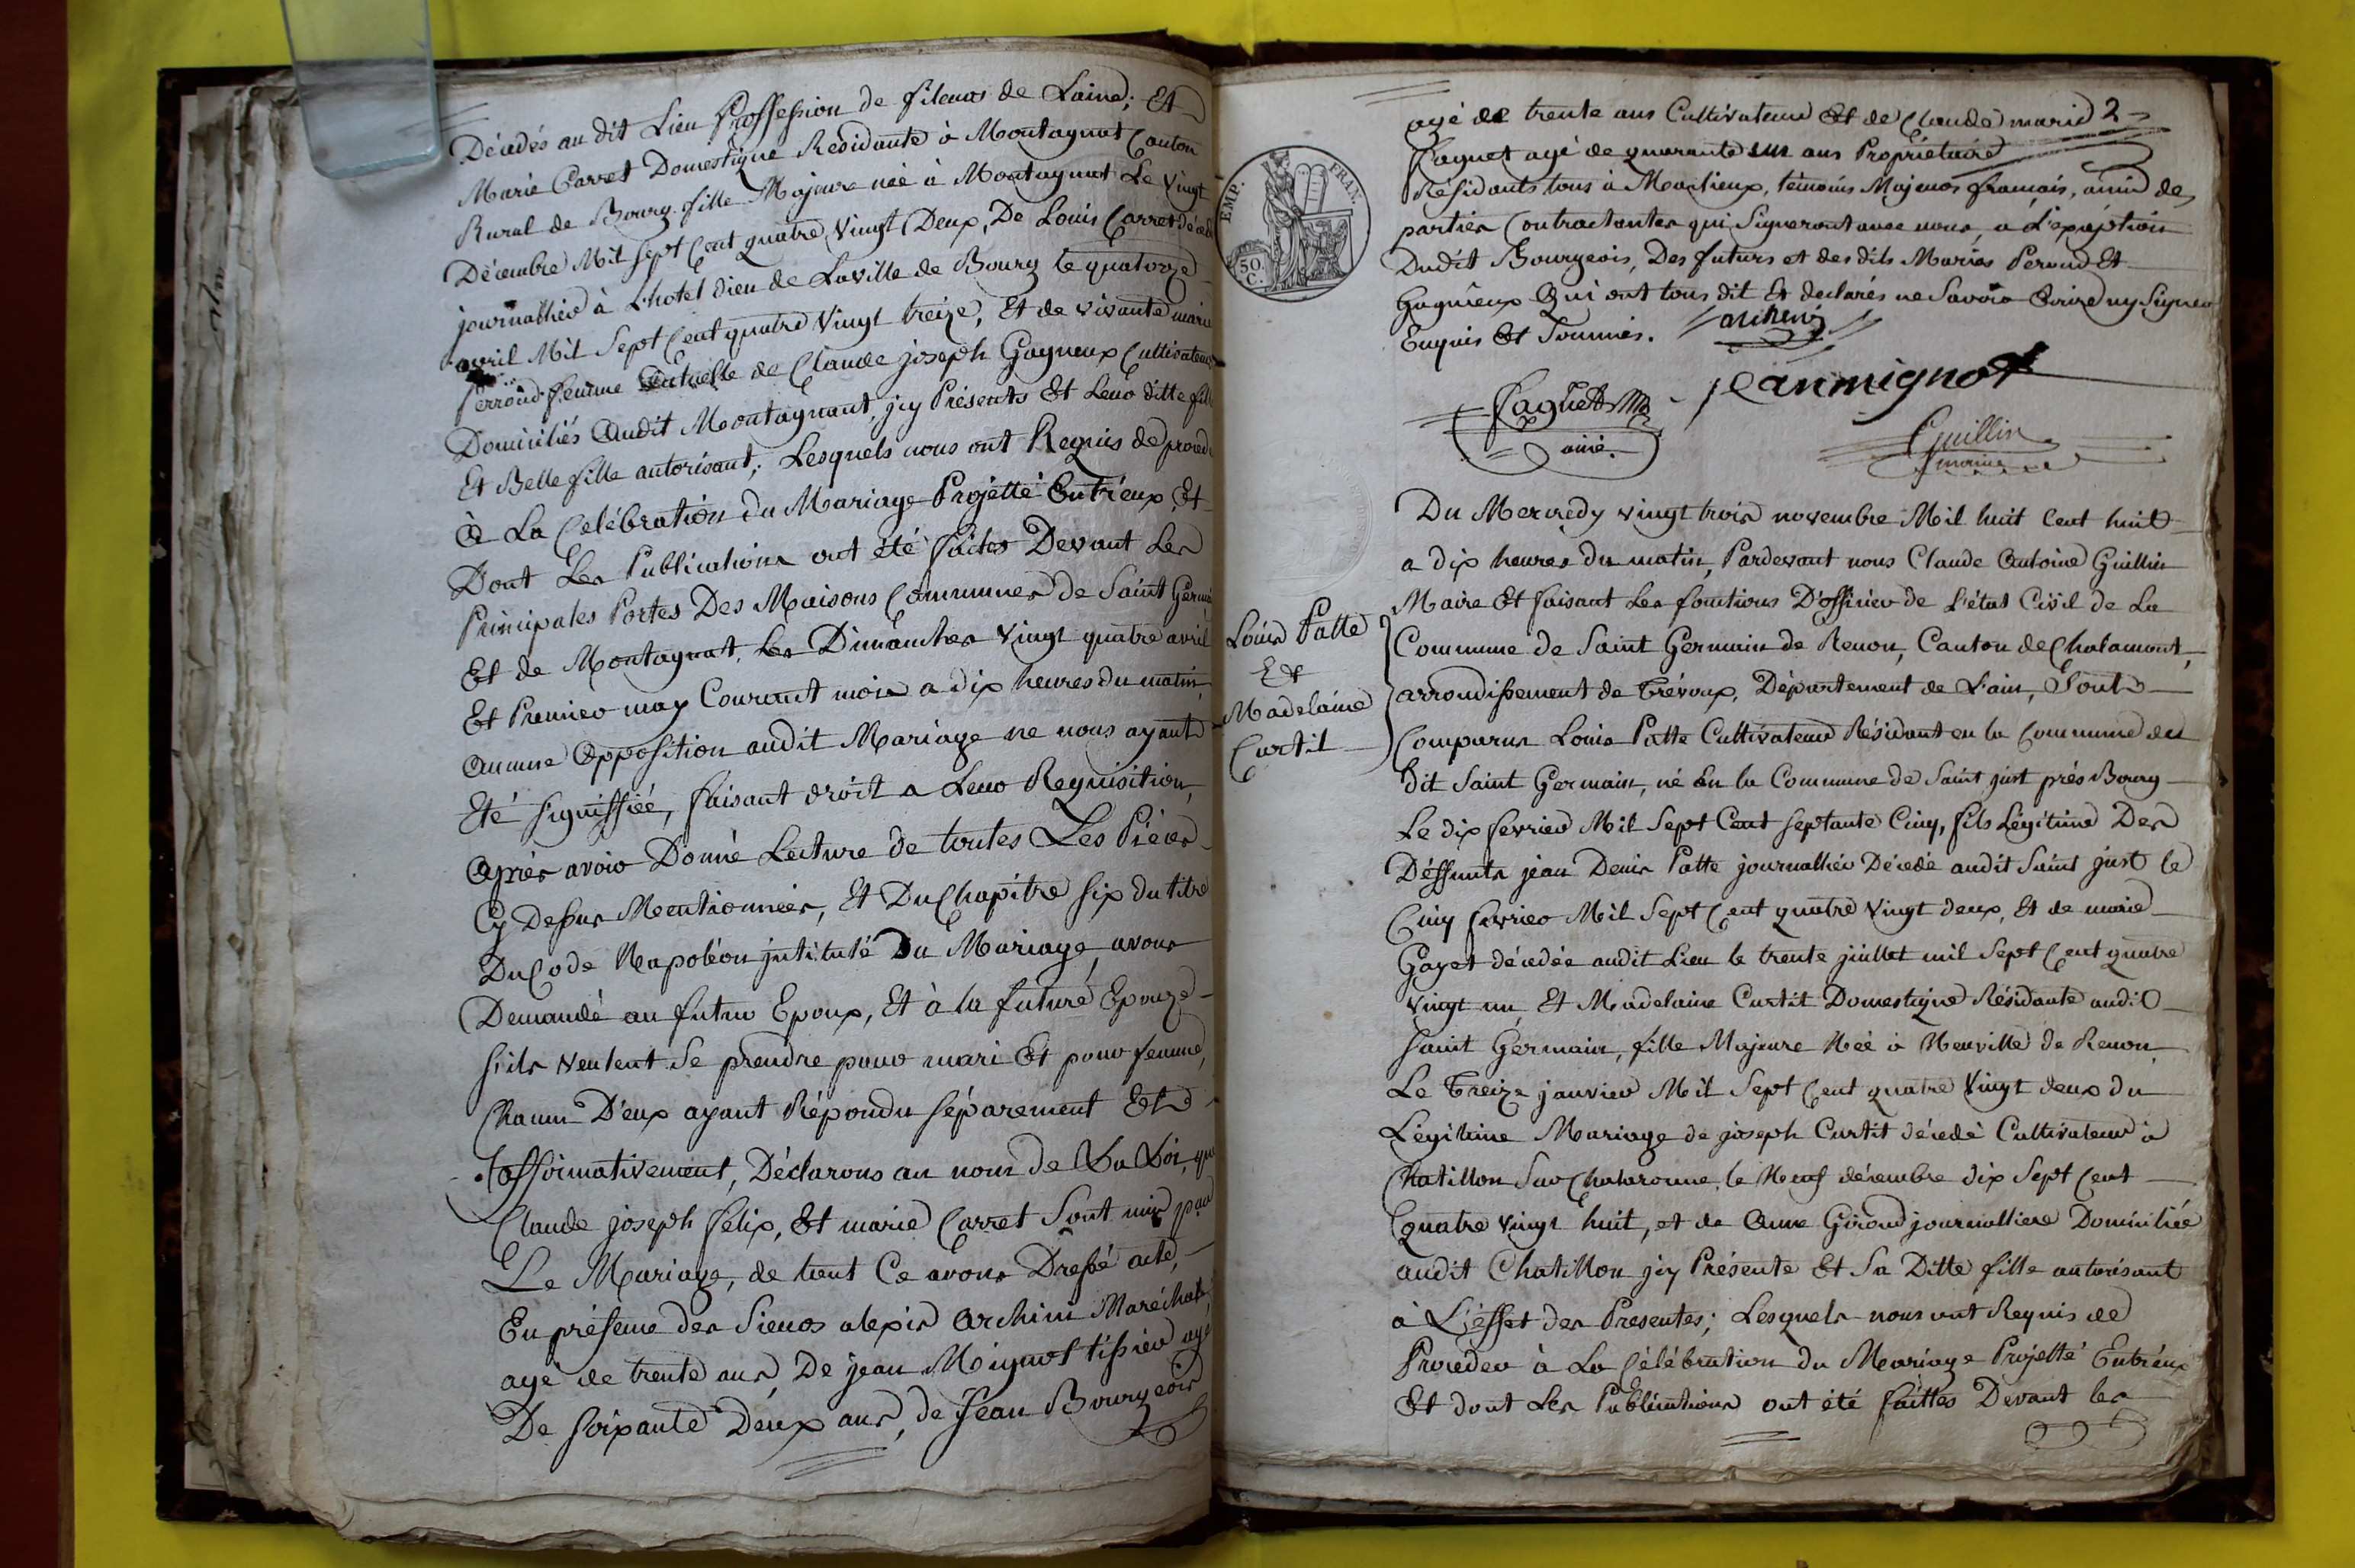 Décédés au dit Lieu Proffession de fileuos de Laine; Et
Marie Carret Domestique Résidante à Montagnat Canton
Rural de Bourg fille Majeure née à Montagnat Le vingt
Décembre Mil Sept Cent quatre Vingt Deux, De Louis Carret
journallier à L'hotel dieu de Laville de Bourg le quatorze
avril Mil Sept Cent quatre Vingt treize, Et de vivante marie
Perroud femme actuelle de Claude joseph Gagneux Cultivateur
Domiciliés audit Montagnant, jcy Présents Et Leur ditte fille
Et Belle fille autorisant; Lesquels nous ont Requis de proced
à La Celébration du Mariage Projetté Entr'eux, Et
Dont Les Publications ont été faites Devant Les
Principales Portes Des Maisons Communes de Saint Germ
Et de Montagnat, Les Dimanches Vingt quatre avril
Et Premier may Courant mois a dix heures du matin,
aucune Opposition audit Mariage ne nous ayant
Eté signiffiée, faisant droit a Leur Requisition,
après avoir Donné Lecture de toutes Les Piéces
Cy Dessus Mentionnées, Et Du Chapitre six du titre
Du Code Napoléon jntitulé Du Mariage, avons
Demandé au futur Epoux, Et à la future Epouze
s'ils veulent se prendre pour mari Et pour femme,
Chacun D'eux ayant Répondu séparement Et
affirmativement, Déclarons au nom de La Loi, que
Claude joseph felix, Et marie Carret Sont unis par
Le Mariage, de tout Ce avons Dressé acte,
En présence des Sieurs alexis archini Maréchal,
agé de trente ans, De jean Mignot tissier agé
De soixante Deux ans, de Jean Bourgeois
EMP. FRAN.
50. C.
agé de trente ans Cultivateur Et de Claude marie 2
faguet agé de quarante ans Propriétaire
Résidants tous à Marlieux, témoins Majeurs français, amis des
parties Contractantes qui Signeront avec nous, a L'exception
Dudit Bourgeois, Des futurs et des dits Maries Peroud Et
Gagnieux Qui ont tous dit Et declarés ne Savoir Ecrire ny Signer
Enquis Et Sommés.
jean mignot
ainé.
Guillin
maire
Du Mercredy vingt trois novembre Mil huit Cent huit
a dix heures du matin, Pardevant nous Claude antoine Guillin
Maire Et faisant Les fonctions D'officier de L'état Civil de La
Commune de Saint Germain de Renon, Canton de Chalamont,
arrondissement de Trévoux, Département de L'ain, Sont
Comparus Louis Patte Cultivateur Résidant en la Commune du
Louis Patte
Et
Madelaine
Curtit
dit Saint Germain, né En la Commune de Saint just près Bourg
Le dix fevrier Mil Sept Cent septante Cinq, fils Légitime Des
Déffunts jean Denis Patte journallier Décedé audit Saint just le
Cinq fevrier Mil Sept Cent quatre Vingt deux, Et de marie
Gayet décedée audit Lieu le trente juillet mil Sept Cent quatre
Vingt un, Et Madelaine Curtit Domestique Résidante audit
Saint Germain, fille Majeure Née à Neuville de Renon
Le Treize janvier Mil Sept Cent quatre Vingt deux du
Légitime Mariage de joseph Curtit décedé Cultivateur à
Chatillon Sur Chalaronne, le Neuf décembre dix Sept Cent
quatre vingt huit, et de Anne Giroud journalliere Domiciliée
audit Chatillon jcy Présente Et Sa Ditte fille autorisant
à L'éffet des Presentes; Lesquels nous ont Requis de
Proceder à La Célébration du Mariage Projetté Entr'eux
Et dont Les Publications ont été faittes Devant les